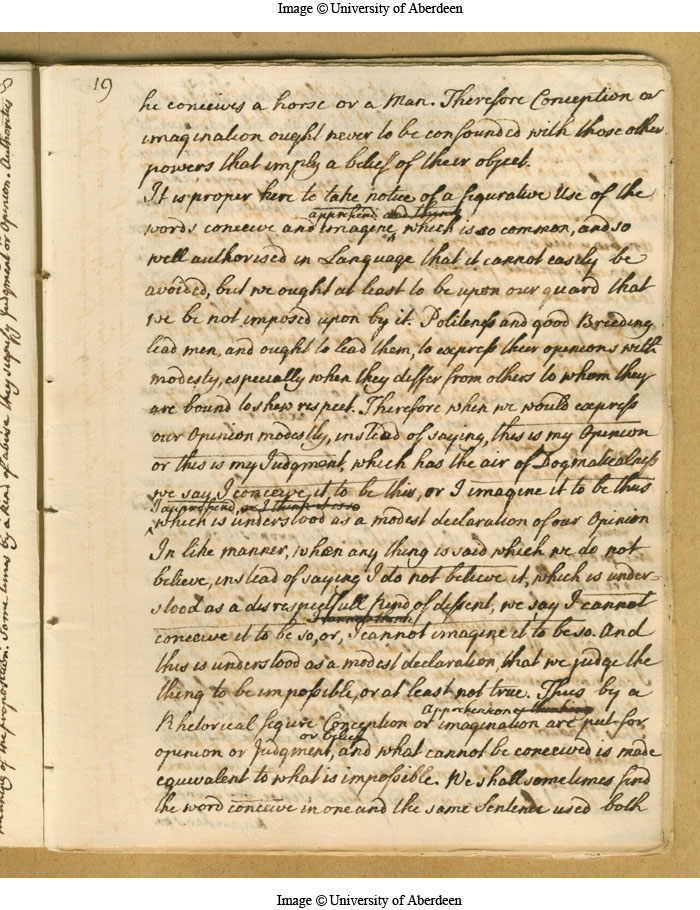 Image © University of Aberdeen
19
he conceives a horse or a Man. Therefore Conception or
imagination ought never to be confounded with those other
powers that imply a belief of their object.
It is proper here to take notice of a figurative Use of the
apprehend and think
words conceive and imagine, which is so common, and so
well authorised in Language that it cannot easily be
avoided, but we ought at least to be upon our guard that
we be not imposed upon by it. Politeness and good Breeding
lead men, and ought to lead them, to express their opinions with
modesty, especially when they differ from others to whom they
are bound to shew respect. Therefore when we would express
our Opinion modestly, instead of saying, this is my Opinion
or this is my Judgment, which has the air of Dogmaticalness
we say I conceive it to be thus, or I imagine it to be thus
I apprehend, or I think it is so
which is understood as a modest declaration of our Opinion
In like manner, when any thing is said, which we do not
believe, instead of saying I do not believe it, which is under-
stood as a disrespectfull kind of dissent, we say I cannot
I cannot think
conceive it to be so, or, I cannot imagine it to be so. And
this is understood as a modest declaration, that we judge the
thing to be impossible, or at least not true. Thus by a
apprehension or thinking
Rhetorical figure Conception or imagination are put for
or Belief
opinion or Judgment, and what cannot be conceived is made
equivalent to what is impossible. We shall sometimes find
the word conceive in one and the same Sentence used both
meaning of the proposition. Some times by a kind of abuse they signify Judgment or Opinion. Authorities
Image © University of Aberdeen